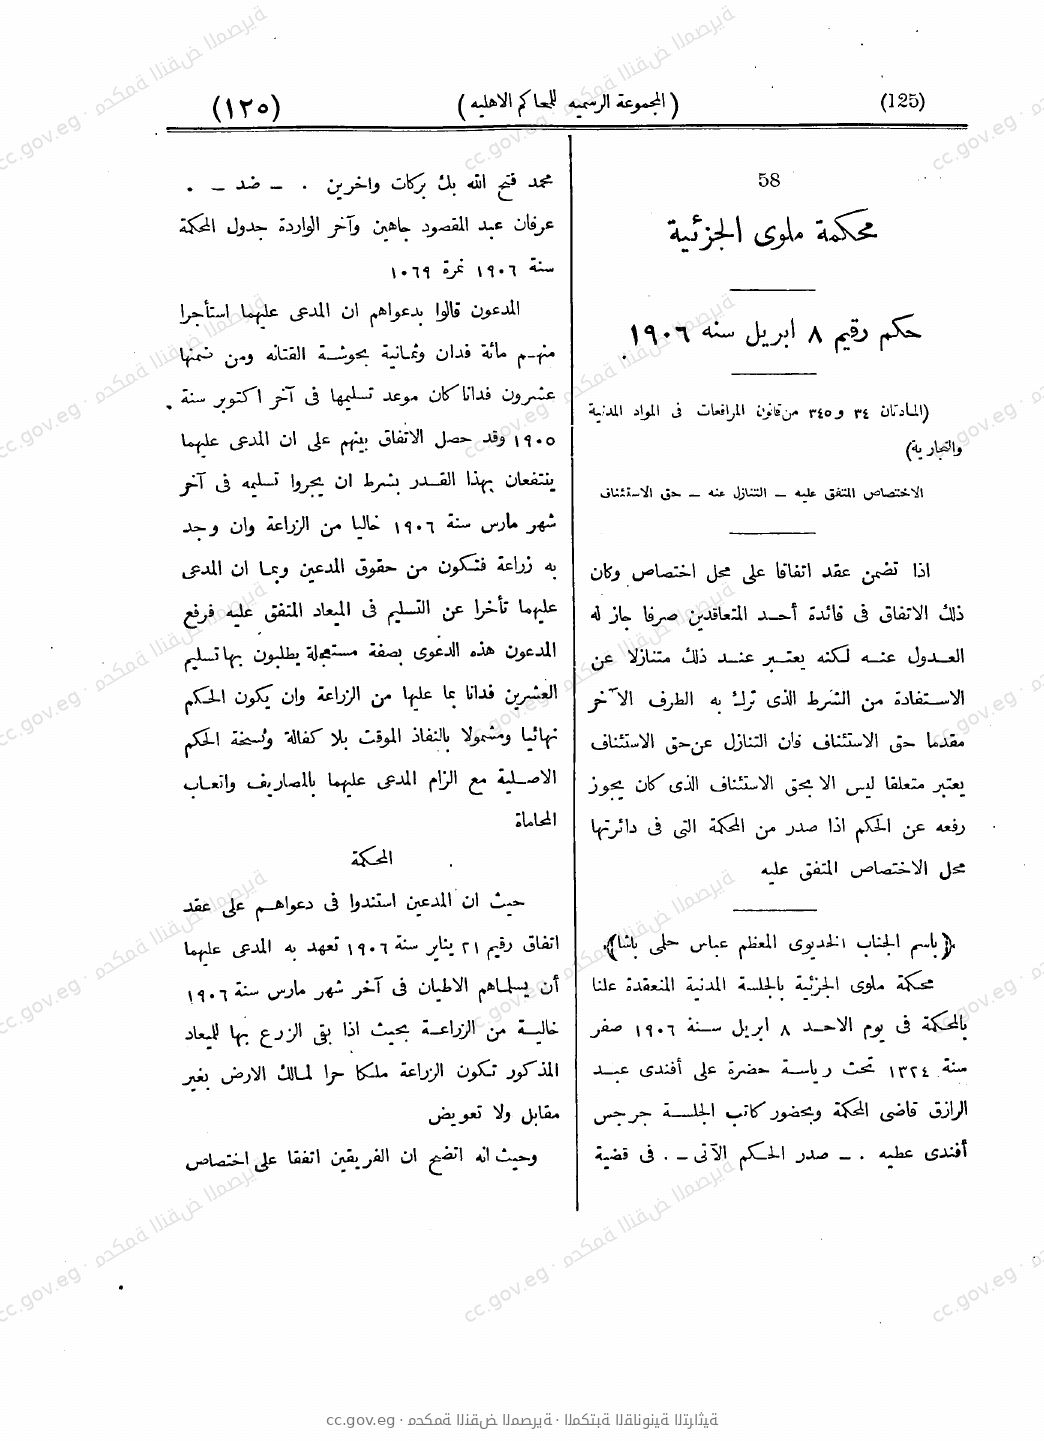 (125)
( المجموعة الرسميه للمحاكم الاهليه )
(١٢٥)
58
محكمة ملوى الجزئية
حكم رقيم ٨ ابريل سنه ١٩٠٦
(المادتان ٣٤ و٣٤٥ من قانون المرافعات فى المواد المدنية
والتجارية)
الاختصاص المتفق عليه ـ التنازل عنه ـ حق الاستئناف
اذا تضمن عقد اتفاقا على محل اختصاص وكان
ذلك الاتفاق فى فائدة أحد المتعاقدين صرفا جاز له
العدول عنه لكنه يعتبر عند ذلك متنازلا عن
الاستفادة من الشرط الذى ترك به الطرف الآخر
مقدما حق الاستئناف فان التنازل عن حق الاستئناف
يعتبر متعلقا ليس الا بحق الاستئناف الذى كان يجوز
رفعه عن الحكم اذا صدر من المحكمة التى فى دائرتها
محل الاختصاص المتفق عليه
﴿باسم الجناب الخديوى المعظم عباس حلمى باشا﴾
محكمة ملوى الجزئية بالجلسة المدنية المنعقدة علنا
بالمحكمة فى يوم الاحد ٨ ابريل سنة ١٩٠٦ صفر
سنة ١٣٢٤ تحت رياسة حضرة على أفندى عبد
الرازق قاضى المحكمة وبحضور كاتب الجلسة جرجس
أفندى عطيه . ـ صدر الحكم الآتى ـ . فى قضية
محمد فتح الله بك بركات واخرين . ـ ضد ـ .
عرفان عبد المقصود جاهين وآخر الواردة جدول المحكمة
سنة ١٩٠٦ نمرة ١٠٦٩
المدعون قالوا بدعواهم ان المدعى عليهما استأجرا
منهم مائة فدان وثمانية بحوشة القتانه ومن ضمنها
عشرون فدانا كان موعد تسليمها فى آخر اكتوبر سنة
١٩٠٥ وقد حصل الاتفاق بينهم على ان المدعى عليهما
ينتفعان بهذا القدر بشرط ان يجروا تسليمه فى آخر
شهر مارس سنة ١٩٠٦ خاليا من الزراعة وان وجد
به زراعة فتكون من حقوق المدعين وبما ان المدعى
عليهما تأخرا عن التسليم فى الميعاد المتفق عليه فرفع
المدعون هذه الدعوى بصفة مستعجلة يطلبون بها تسليم
العشرين فدانا بما عليها من الزراعة وان يكون الحكم
نهائيا ومشمولا بالنفاذ الموقت بلا كفالة ونسخة الحكم
الاصلية مع الزام المدعى عليهما بالمصاريف واتعاب
المحاماة
المحكمة
حيث ان المدعين استندوا فى دعواهم على عقد
اتفاق رقيم ٢١ يناير سنة ١٩٠٦ تعهد به المدعى عليهما
أن يسلماهم الاطيان فى آخر شهر مارس سنة ١٩٠٦
خالية من الزراعة بحيث اذا بقى الزرع بها للميعاد
المذكور تكون الزراعة ملكا حرا لمالك الارض بغير
مقابل ولا تعويض
وحيث انه اتضح ان الفريقين اتفقا على اختصاص
cc.gov.eg · محكمة النقض المصرية · المكتبة القانونية التراثية